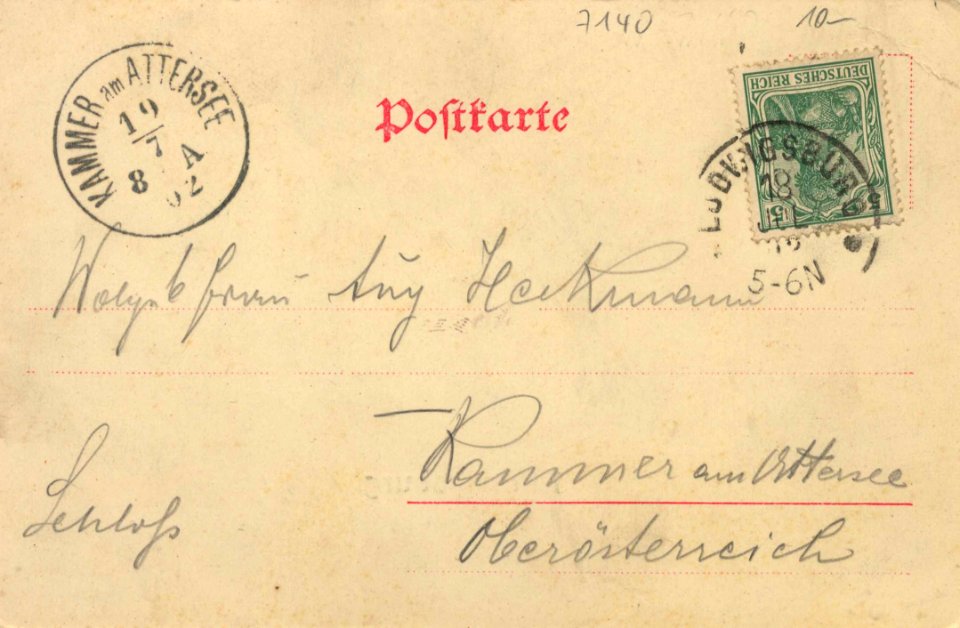 7140 10-
KAMMER am ATTERSEE
19/7
8 A
02
Postkarte
DEUTSCHES REICH
5 5
LUDWIGSBURG
18
5-6N
Wolgeb Frau Aug Heckmann
Kammer am Attersee
Schloß
Oberösterreich